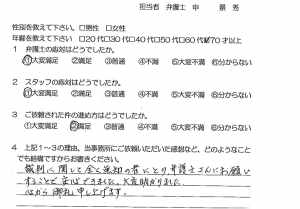 担当者 弁護士 申 景秀
性別を教えて下さい。 □男性 □女性
年齢を教えて下さい □20代□30代□40代□50代□60代☑70才以上
1 弁護士の応対はどうでしたか。
①大変満足 ②満足 ③普通 ④不満 ⑤大変不満 ⑥分からない
2 スタッフの応対はどうでしたか。
①大変満足 ②満足 ③普通 ④不満 ⑤大変不満 ⑥分からない
3 ご依頼された件の進め方はどうでしたか。
①大変満足 ②満足 ③普通 ④不満 ⑤大変不満 ⑥分からない
4 上記1~3の理由、当事務所にご依頼いただいた感想など、どのようなこと
でも結構ですからお書きください。
裁判に関して全く無知の者にとり弁護士さんにお願い
することで安心できました。大変助かりました。
心から御礼申し上げます。